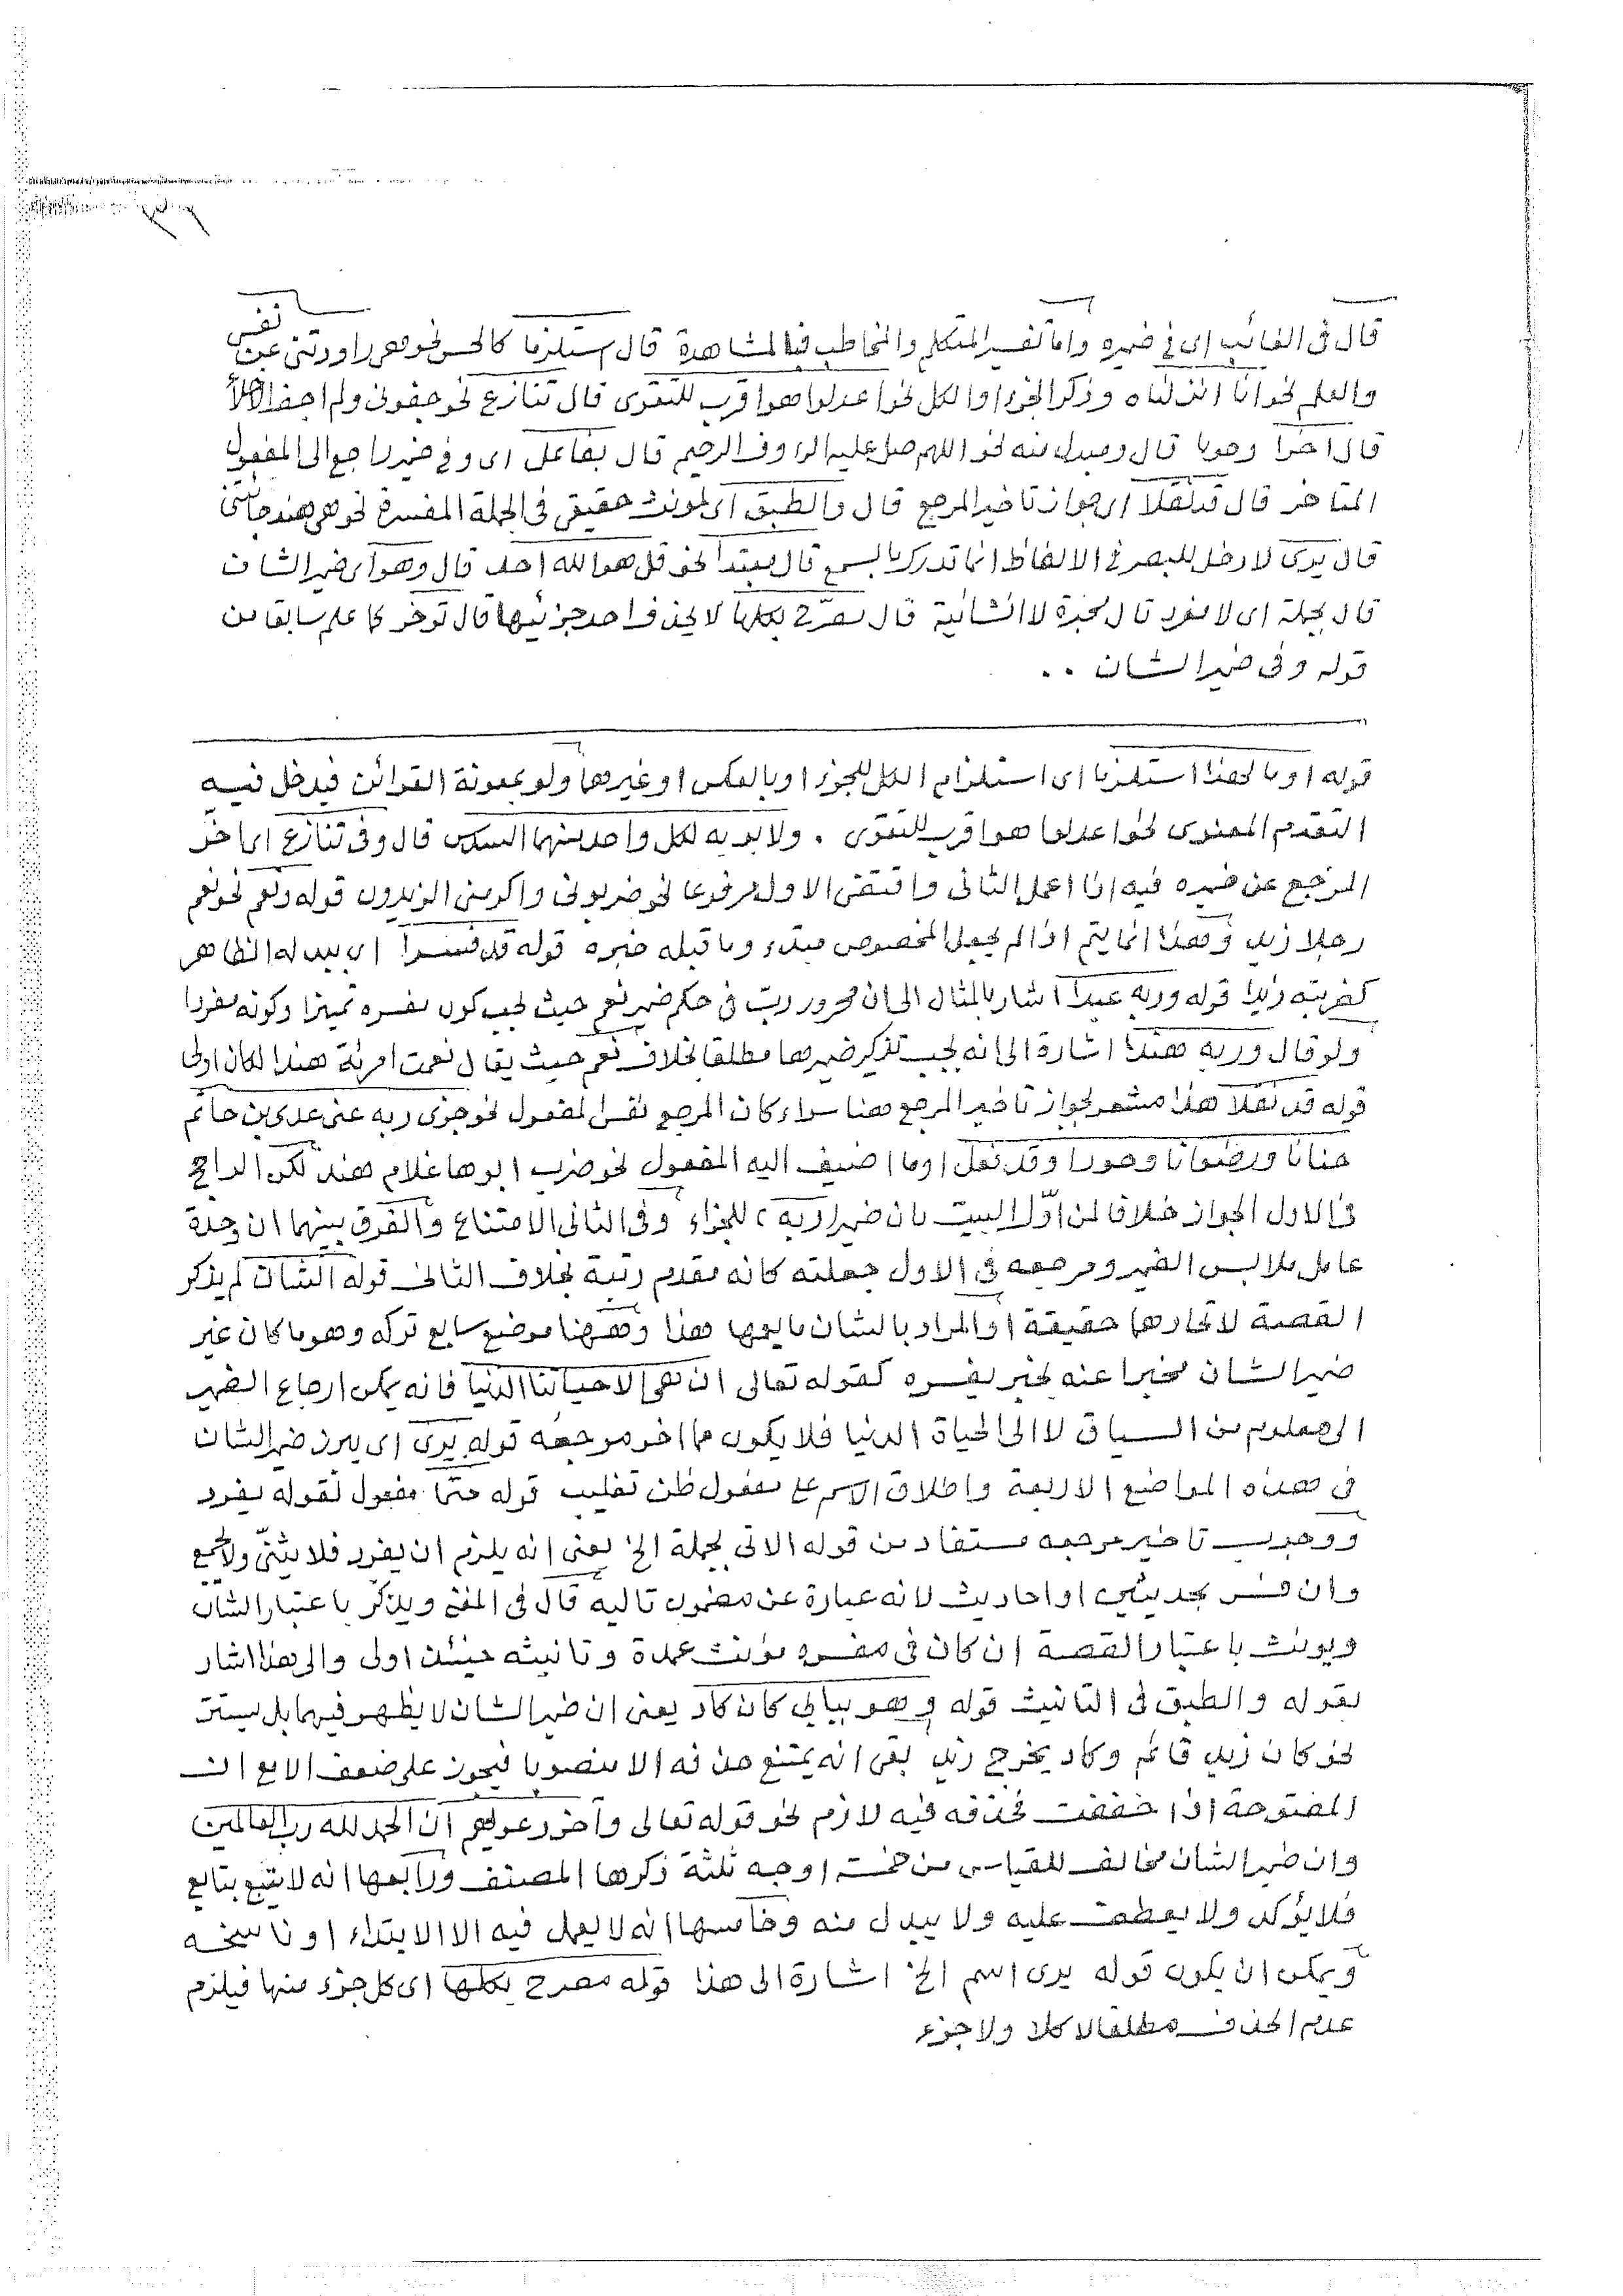 قال فى الغائب اى فى ضميره واما تفسير المتكلم والمخاطب فبالمشاهدة قال استلزما كالحس نحو هى راودتنى عن نفسى
والعلم نحو انا انزلناه وذكر الجزء او الكل نحو اعدلوا هو اقرب للتقوى قال تنازع نحو جفونى ولم اجف الاخلاء
قال اخرا وجوبا قال ومبدل منه نحو اللهم صل عليه الرءوف الرحيم قال بفاعل اى وفى ضمير راجع الى المفعول
المتاخر قال قد نقلا اى جواز تاخير المرجع قال والطبق اى لمونث حقيقى فى الجملة المفسرة نحو هى هند جائتنى
قال يرى لا دخل للبصر فى الالفاظ انما تدرك بالسمع قال مبتدأ نحو قل هو الله احد قال وهو اى ضمير الشان
قال بجملة اى لا مفرد قال مخبرة لا انشائية قال بكلها لا يحذف احد جزئيها قال توخر كما علم سابقا من
قوله وفى ضمير الشان ..
قوله او ما لهذا استلزما اى استلزام الكل للجزء او بالعكس او غيرهما ولو بمعونة القرائن فيدخل فيه
التقدم المعنوى نحو اعدلوا هو اقرب للتقوى . ولابويه لكل واحد منهما السدس قال وفى تنازع اى اخر
المرجع عن ضميره فيه اذا اعمل الثانى واقتضى الاول مرفوعا نحو ضربونى واكرمنى الزيدون قوله ونعم نحو نعم
رجلا زيد وهذا انما يتم اذا لم يجعل المخصوص مبتدء وما قبله خبره قوله قد فسرا اى ببدله الظاهر
كضربته زيدا قوله وربه عبدا اشار بالمثال الى ان مجرور رب فى حكم ضمير نعم حيث يجب كون مفسره تميزا وكونه مفردا
ولو قال وربه هندا اشارة الى انه يجب تذكير ضميرها مطلقا بخلاف نعم حيث يقال نعمت امرئة هندا لكان اولى
قوله قد نقلا هذا مشعر بجواز تاخير المرجع هنا سواء كان المرجع نفس المفعول نحو جزى ربه عنى عدى بن حاتم
جنانا ورضوانا وحورا وقد نقل او ما اضيف اليه المفعول نحو ضرب ابوها غلام هند لكن الراجح
فى الاول الجواز خلافا لمن اوّل البيت بان ضمير ربه للجزاء وفى الثانى الامتناع والفرق بينهما ان وحدة
عامل ملابس الضمير ومرجعه فى الاول جعلته كانه مقدم رتبة بخلاف الثانى قوله الشان لم يذكر
القصة لاتحادهما حقيقة او المراد بالشان ما يعمها هذا وههنا موضع سابع تركه وهو ما كان غير
ضمير الشان مخبرا عنه بخبر يفسره كقوله تعالى ان هى الا حياتنا الدنيا فانه يمكن ارجاع الضمير
الى معلوم من السياق لا الى الحياة الدنيا فلا يكون مما اخر مرجعه قوله يرى اى يبرز ضمير الشان
فى هذه المواضع الاربعة واطلاق الاسم على مفعول ظن تغليب قوله حتما مفعول لقوله يفرد
ووجوب تاخير مرجعه مستفاد من قوله الاتى بجملة الخ يعنى انه يلزم ان يفرد فلا يثنّى ولا يجمع
وان فسر بحديثين او احاديث لانه عبارة عن مضمون تاليه قال فى المغنى ويذكّر باعتبار الشان
ويونث باعتبار القصة ان كان فى مفسره مونث عمدة وتانيثه حينئذ اولى والى هذا اشار
بقوله والطبق فى التانيث قوله وهو ببابى كان كاد يعنى ان ضمير الشان لا يظهر فيهما بل يستتر
نحو كان زيد قائم وكاد يخرج زيد بقى انه يمتنع حذفه الا منصوبا فيجوز على ضعف الا مع ان
المفتوحة اذا خففت فحذفه فيه لازم نحو قوله تعالى وآخر دعويهم ان الحمد لله رب العالمين
وان ضمير الشان مخالف للقياس من خمسة اوجه ثلثة ذكرها المصنف ورابعها انه لا يتبع بتابع
فلا يؤكد ولا يعطف عليه ولا يبدل منه وخامسها انه لا يعمل فيه الا الابتداء او ناسخه
ويمكن ان يكون قوله يرى اسم الخ اشارة الى هذا قوله مصرح بكلها اى كل جزء منها فيلزم
عدم الحذف مطلقا لا كلا ولا جزء